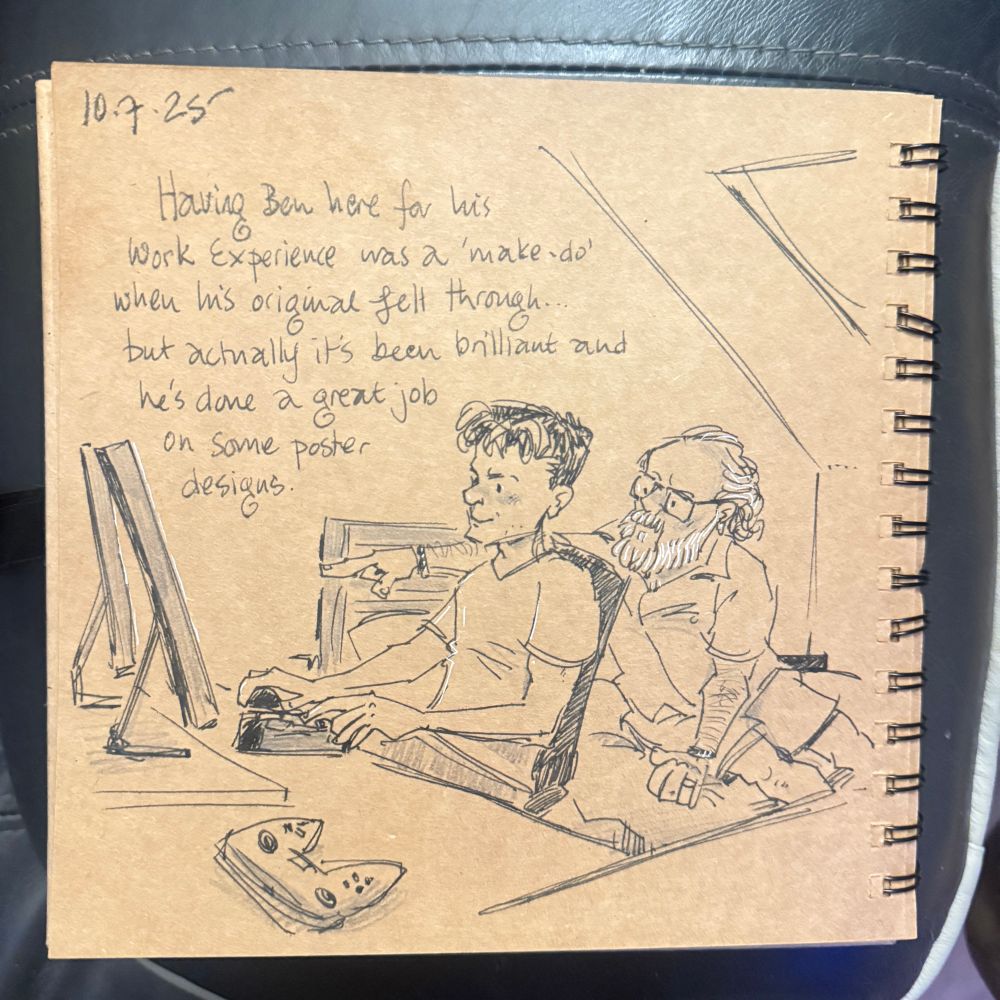 10.7.25
Having Ben here for his
Work Experience was a 'make-do'
when his original fell through...
but actually it's been brilliant and
he's done a great job
on some poster
designs.